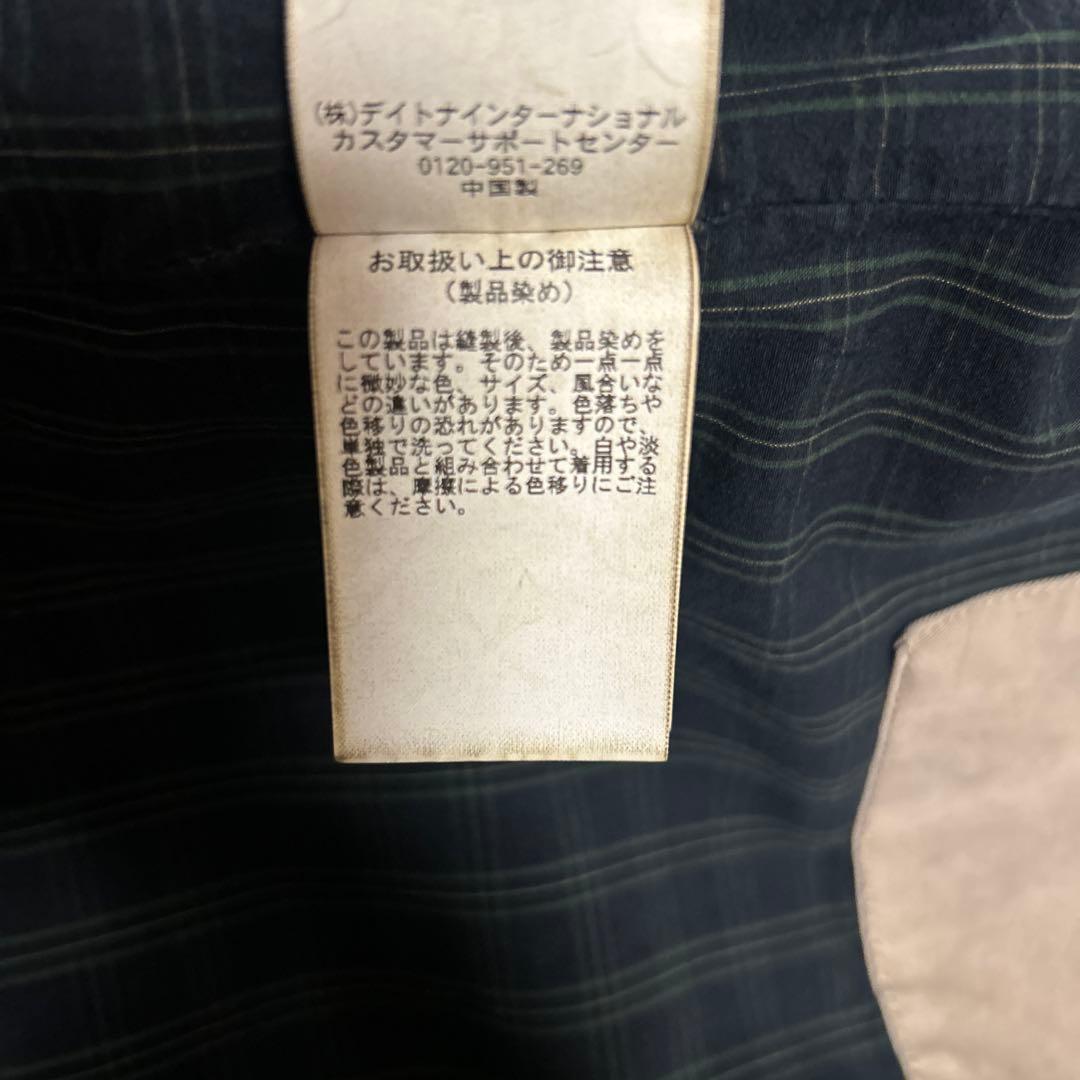 (株)デイトナインターナショナル
カスタマーサポートセンター
0120-951-269
中国製
お取扱い上の御注意
(製品染め)
この製品は縫製後、製品染めを
しています。そのため一点一点
に微妙な色、サイズ、風合いな
どの違いがあります。色落ちや
色移りの恐れがありますので、
単独で洗ってください。白や淡
色製品と組み合わせて着用する
際は、摩擦による色移りにご注
意ください。